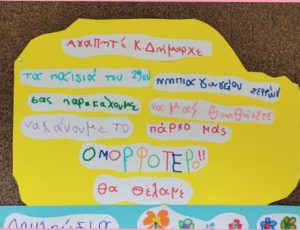 Αγαπητέ κ. Δήμαρχε
Τα παιδιά του 29ου Νηπιαγωγείου Σερρών
σας παρακαλούμε να μας βοηθήσετε
να κάνουμε το πάρκο μας
ΟΜΟΡΦΟΤΕΡΟ!!
θα θέλαμε